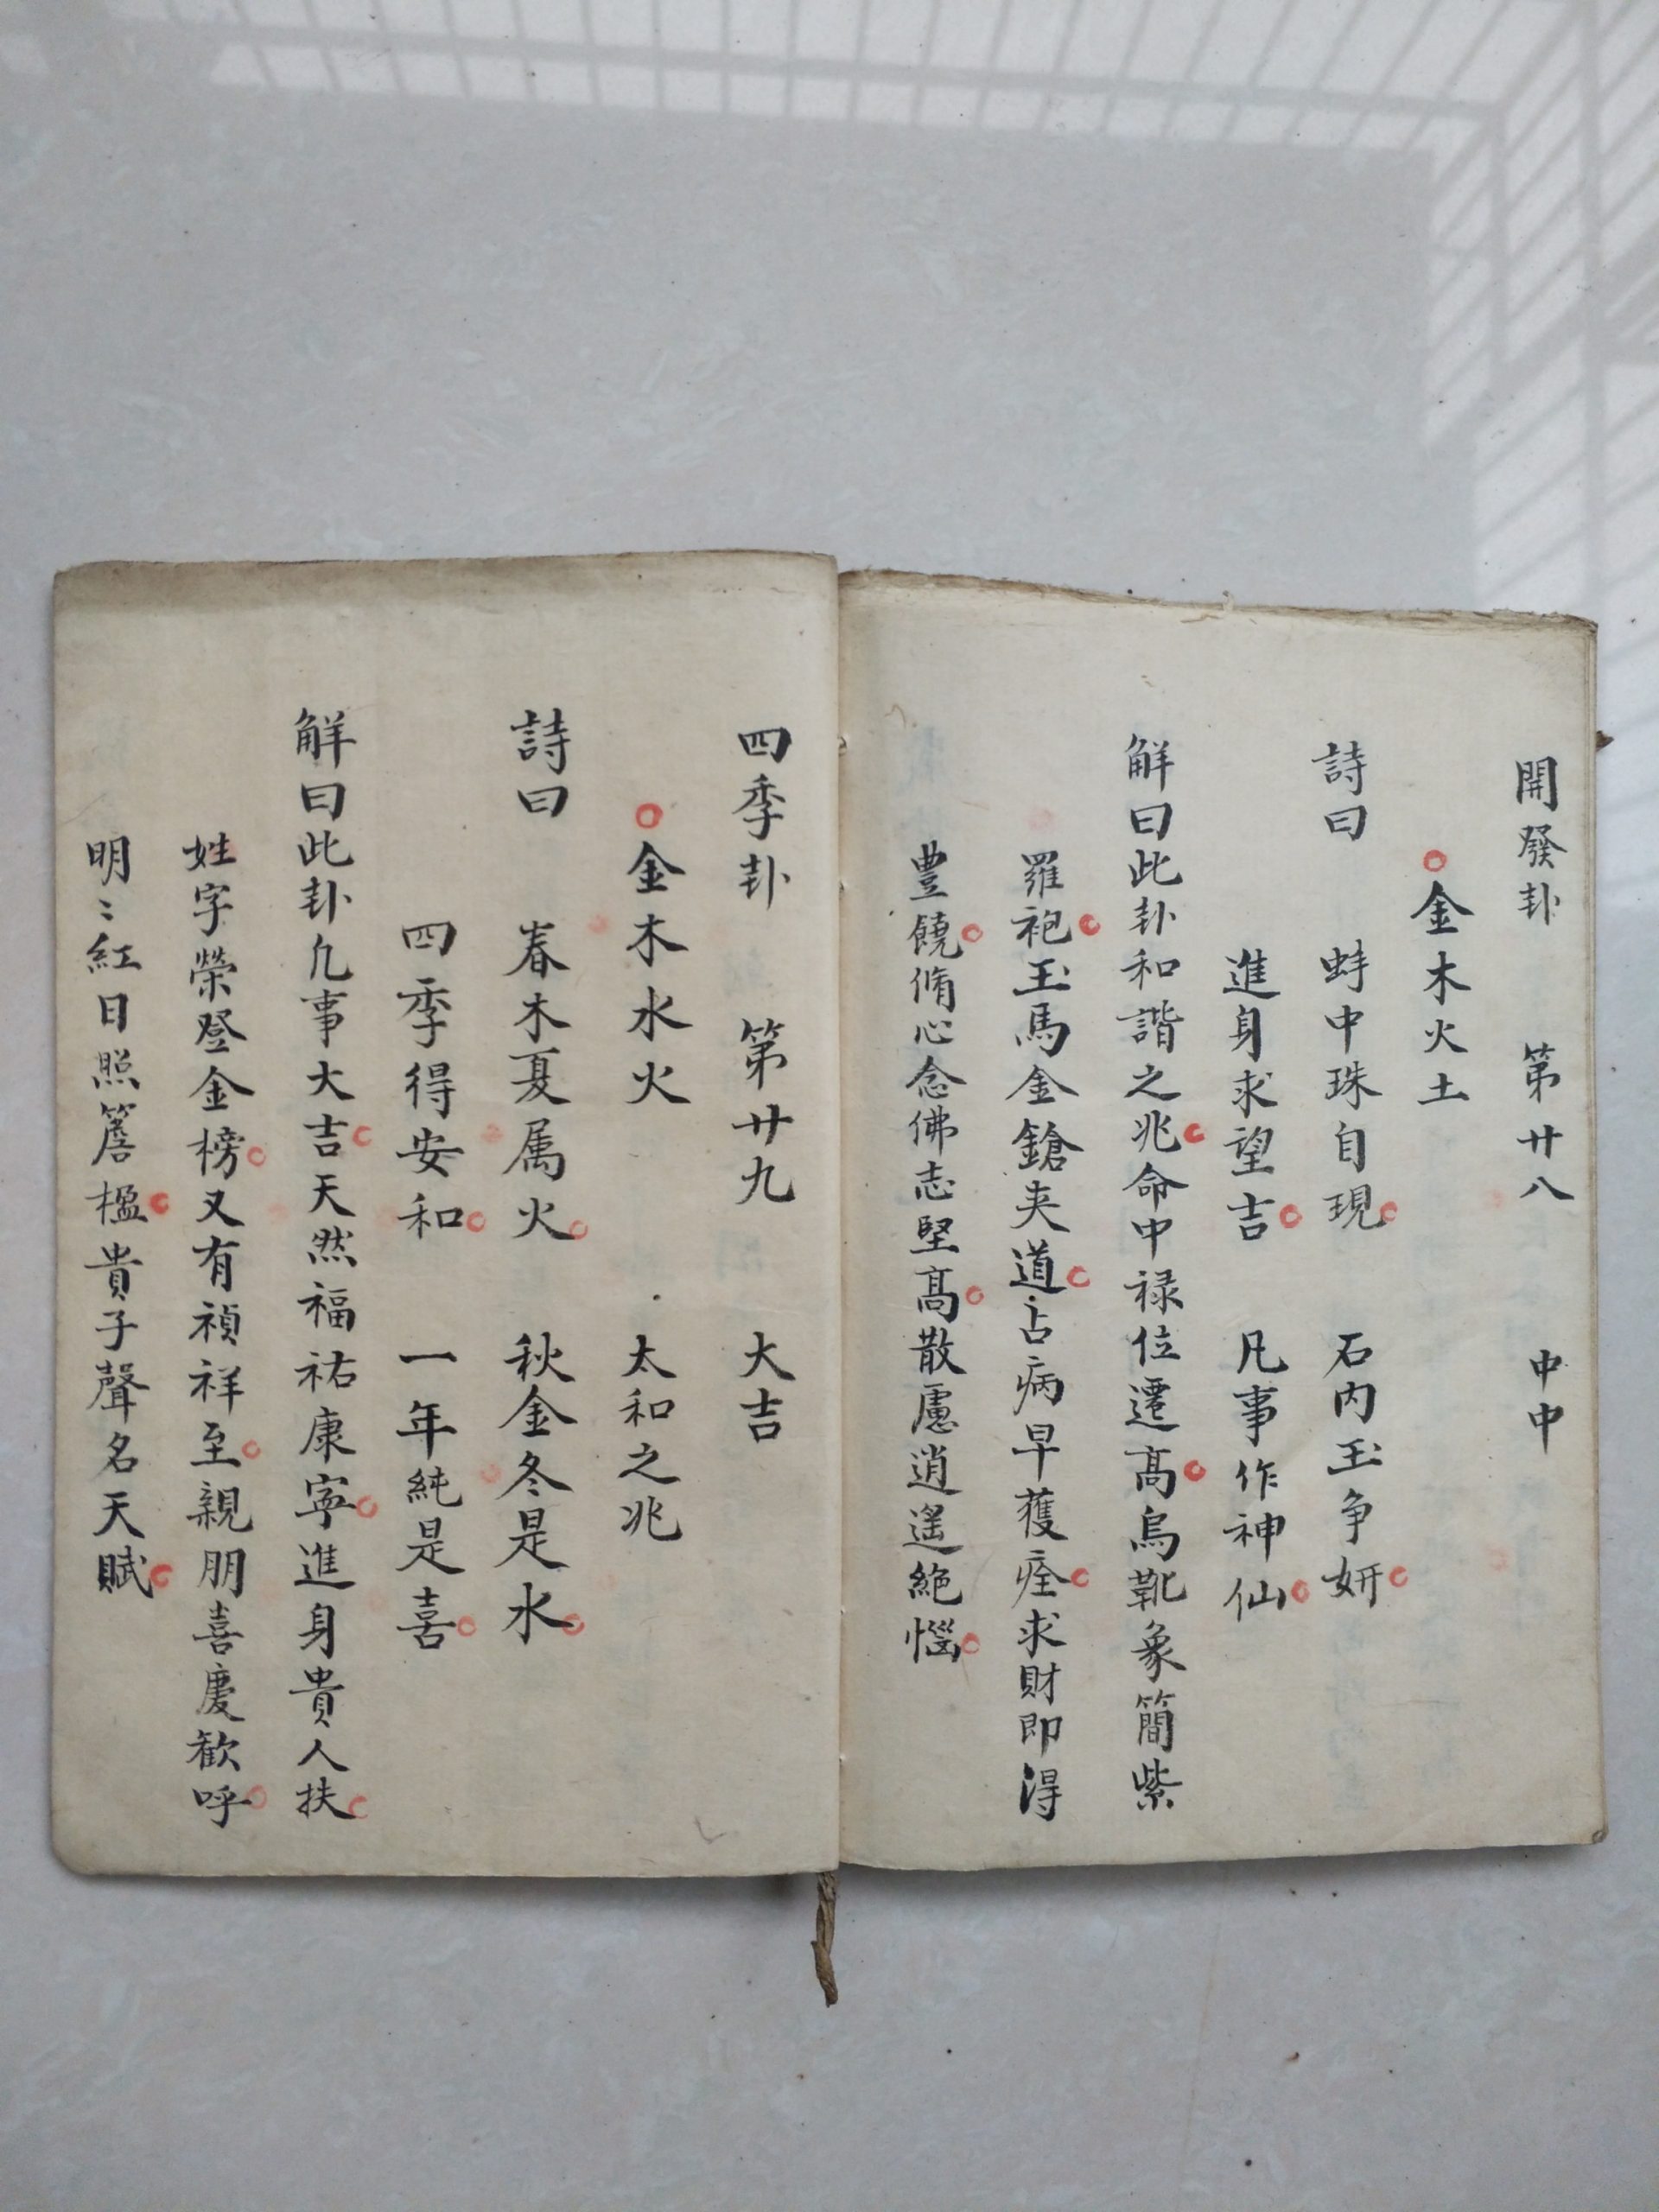 開發卦 第廿八 中中
金木火土
詩曰 蚌中珠自現 石内玉争妍
進身求望吉 凡事作神仙
解曰此卦和諧之兆命中禄位遷高烏靴象簡紫
羅袍玉馬金鎗夾道占病早獲痊求財即得
豊饒脩心念佛志堅高散慮逍遥絶惱
四季卦 第廿九 大吉
金木水火 太和之兆
詩曰 春木夏属火 秋金冬是水
四季得安和 一年純是喜
解曰此卦凢事大吉天然福祐康寜進身貴人扶
姓字榮登金榜又有禎祥至親朋喜慶歓呼
明〻紅日照簷楹貴子聲名天賦